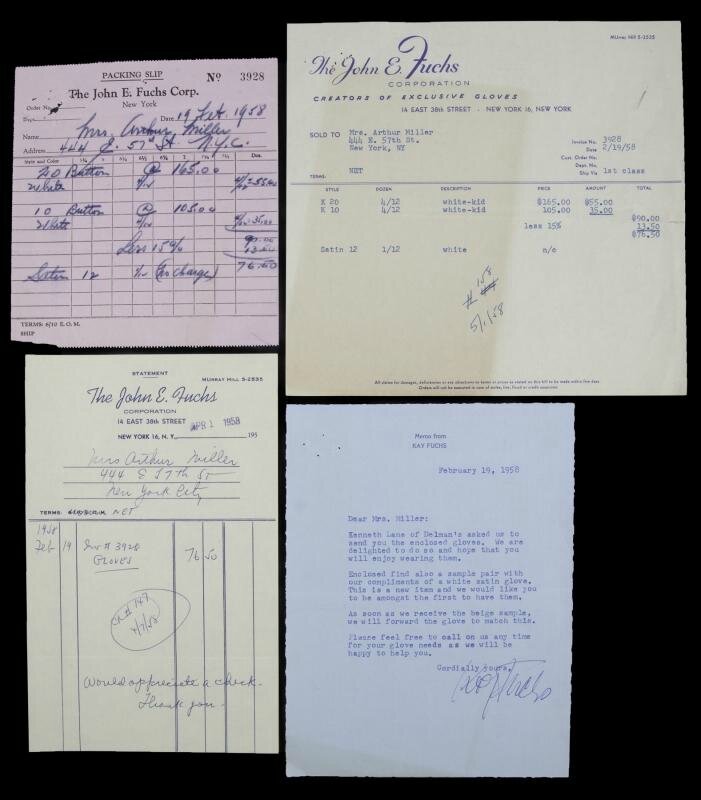 PACKING SLIP
Nº 3928
The John E. Fuchs Corp.
New York
Order No.
Dept.
Date 19 Feb. 1958
Name Mrs. Arthur Miller
Address 444 E. 57th St. N.Y.C.
Style and Color
Doz.
20 Button @ 165.00
White 4/12 55.00
10 Button @ 105.00
White 4/12 35.00
90.00
Less 15% 13.50
76.50
Satin 12 1/12 (No Charge)
TERMS: 8/10 E.O.M.
SHIP
MUrray Hill 5-2535
The John E. Fuchs
CORPORATION
CREATORS OF EXCLUSIVE GLOVES
14 EAST 38th STREET · NEW YORK 16, NEW YORK
SOLD TO Mrs. Arthur Miller
444 E. 57th St.
New York, NY
Invoice No. 3928
Date 2/19/58
Cust. Order No.
Dept. No.
Ship Via 1st class
TERMS: NET
STYLE DOZEN DESCRIPTION PRICE AMOUNT TOTAL
K 20 4/12 white-kid $165.00 $55.00
K 10 4/12 white-kid 105.00 35.00
$90.00
less 15% 13.50
$76.50
Satin 12 1/12 white n/c
# 158
5/1/58
All claims for damages, deficiencies or any objections to terms or prices as stated on this bill to be made within five days
Orders will not be executed in case of strike, fire, flood or credit suspension
STATEMENT
MURRAY HILL 5-2535
The John E. Fuchs
CORPORATION
14 EAST 38th STREET
NEW YORK 16, N. Y. APR 1 1958 195
Mrs Arthur Miller
444 E 57th St
New York City
TERMS: NET
1958
Feb 19 Inv # 3928 76 50
GLOVES
CK # 147
4/7/58
Would appreciate a check.
Thank you.
Memo from
KAY FUCHS
February 19, 1958
Dear Mrs. Miller:
Kenneth Lane of Delman's asked us to
send you the enclosed gloves. We are
delighted to do so and hope that you
will enjoy wearing them.
Enclosed find also a sample pair with
our compliments of a white satin glove.
This is a new item and we would like you
to be amongst the first to have them.
As soon as we receive the beige sample,
we will forward the glove to match this.
Please feel free to call on us any time
for your glove needs as we will be
happy to help you.
Cordially yours,
Kay Fuchs